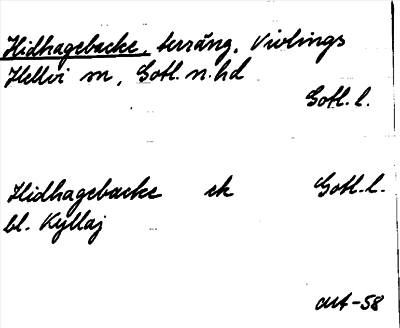 Hidhagebacke, terräng, Violings
Hellvi sn, Gotl. n. hd
Gotl. l.
Hidhagebacke ek Gotl. l.
bl. Kyllaj